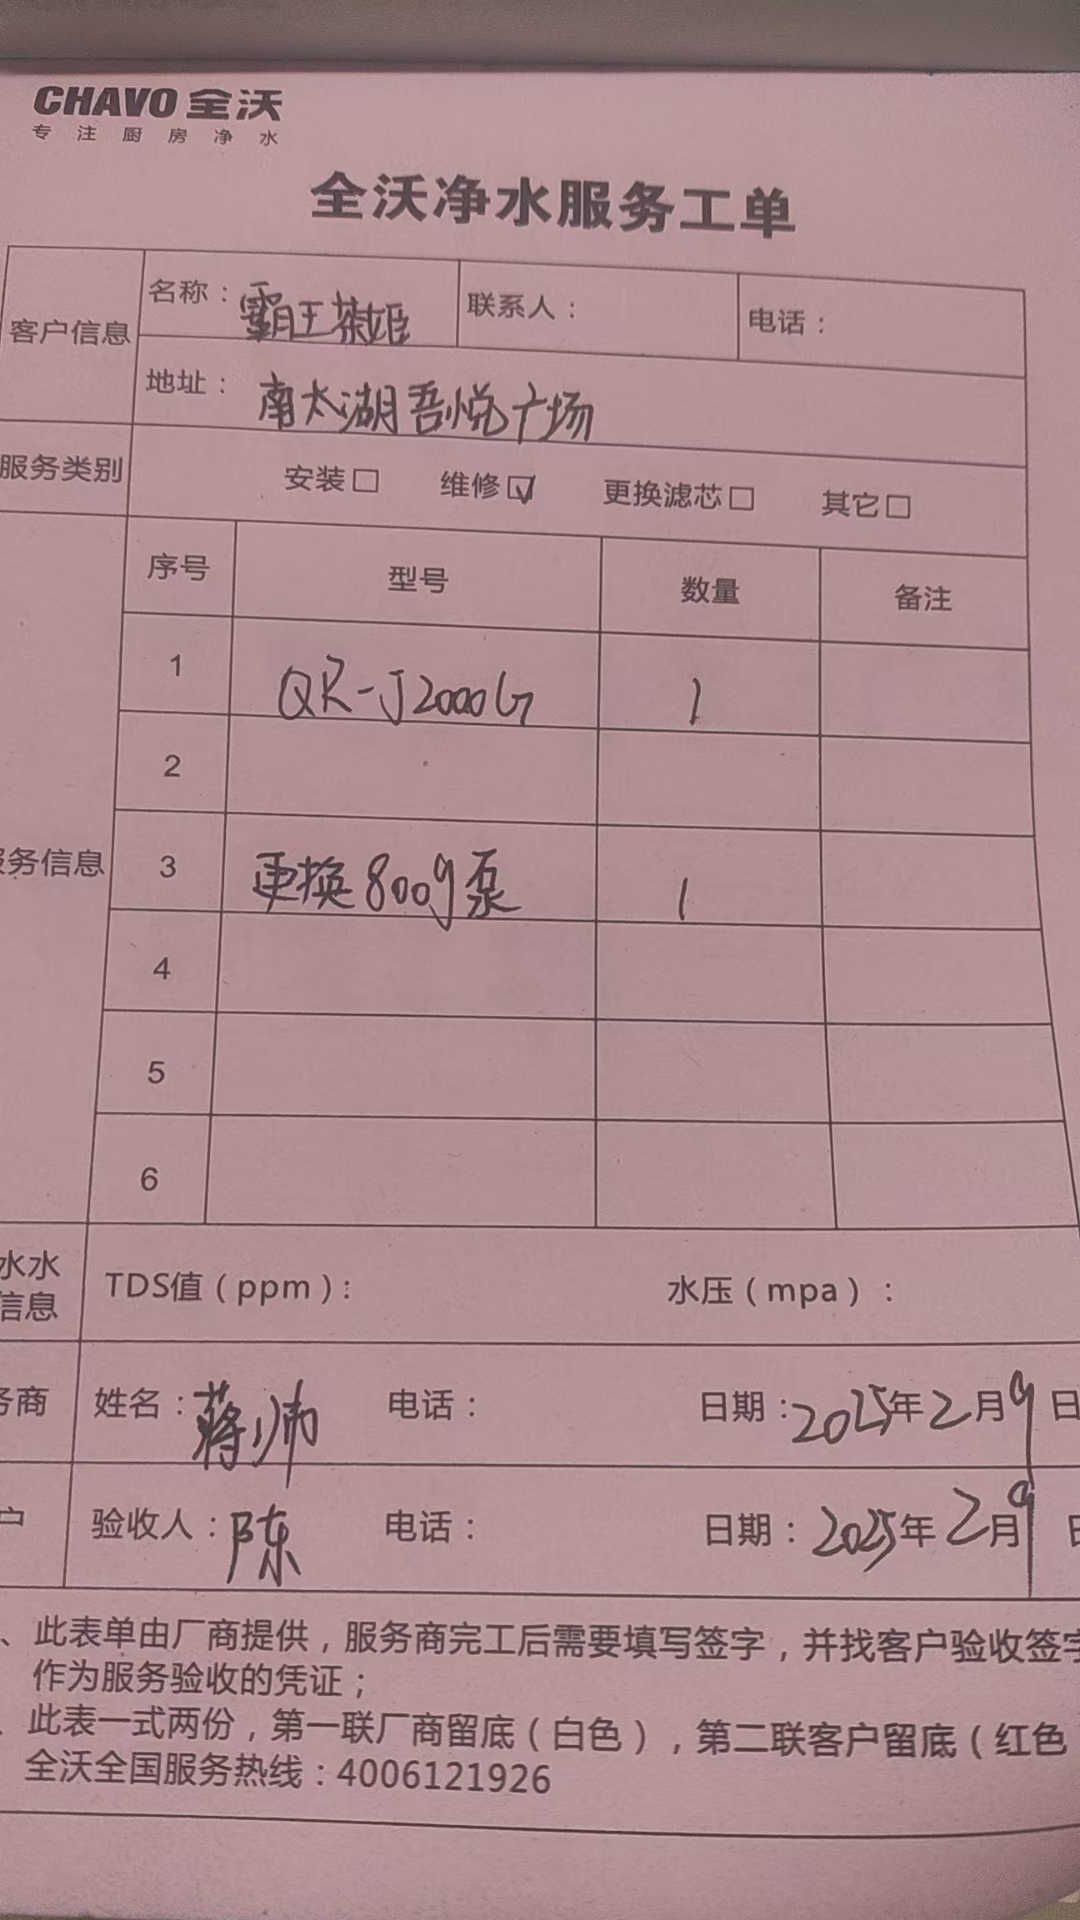 CHAVO 全沃
专注厨房净水
全沃净水服务工单
客户信息 名称：霸王茶姬 联系人： 电话：
地址：南太湖吾悦广场
服务类别 安装□ 维修☑ 更换滤芯□ 其它□
序号 型号 数量 备注
1 QR-J2000G 1
2
务信息 3 更换800g泵 1
4
5
6
水水
信息 TDS值（ppm）： 水压（mpa）：
务商 姓名：蒋帅 电话： 日期：2025年2月9日
户 验收人：陈 电话： 日期：2025年2月9日
、此表单由厂商提供，服务商完工后需要填写签字，并找客户验收签字
作为服务验收的凭证；
、此表一式两份，第一联厂商留底（白色），第二联客户留底（红色
全沃全国服务热线：4006121926